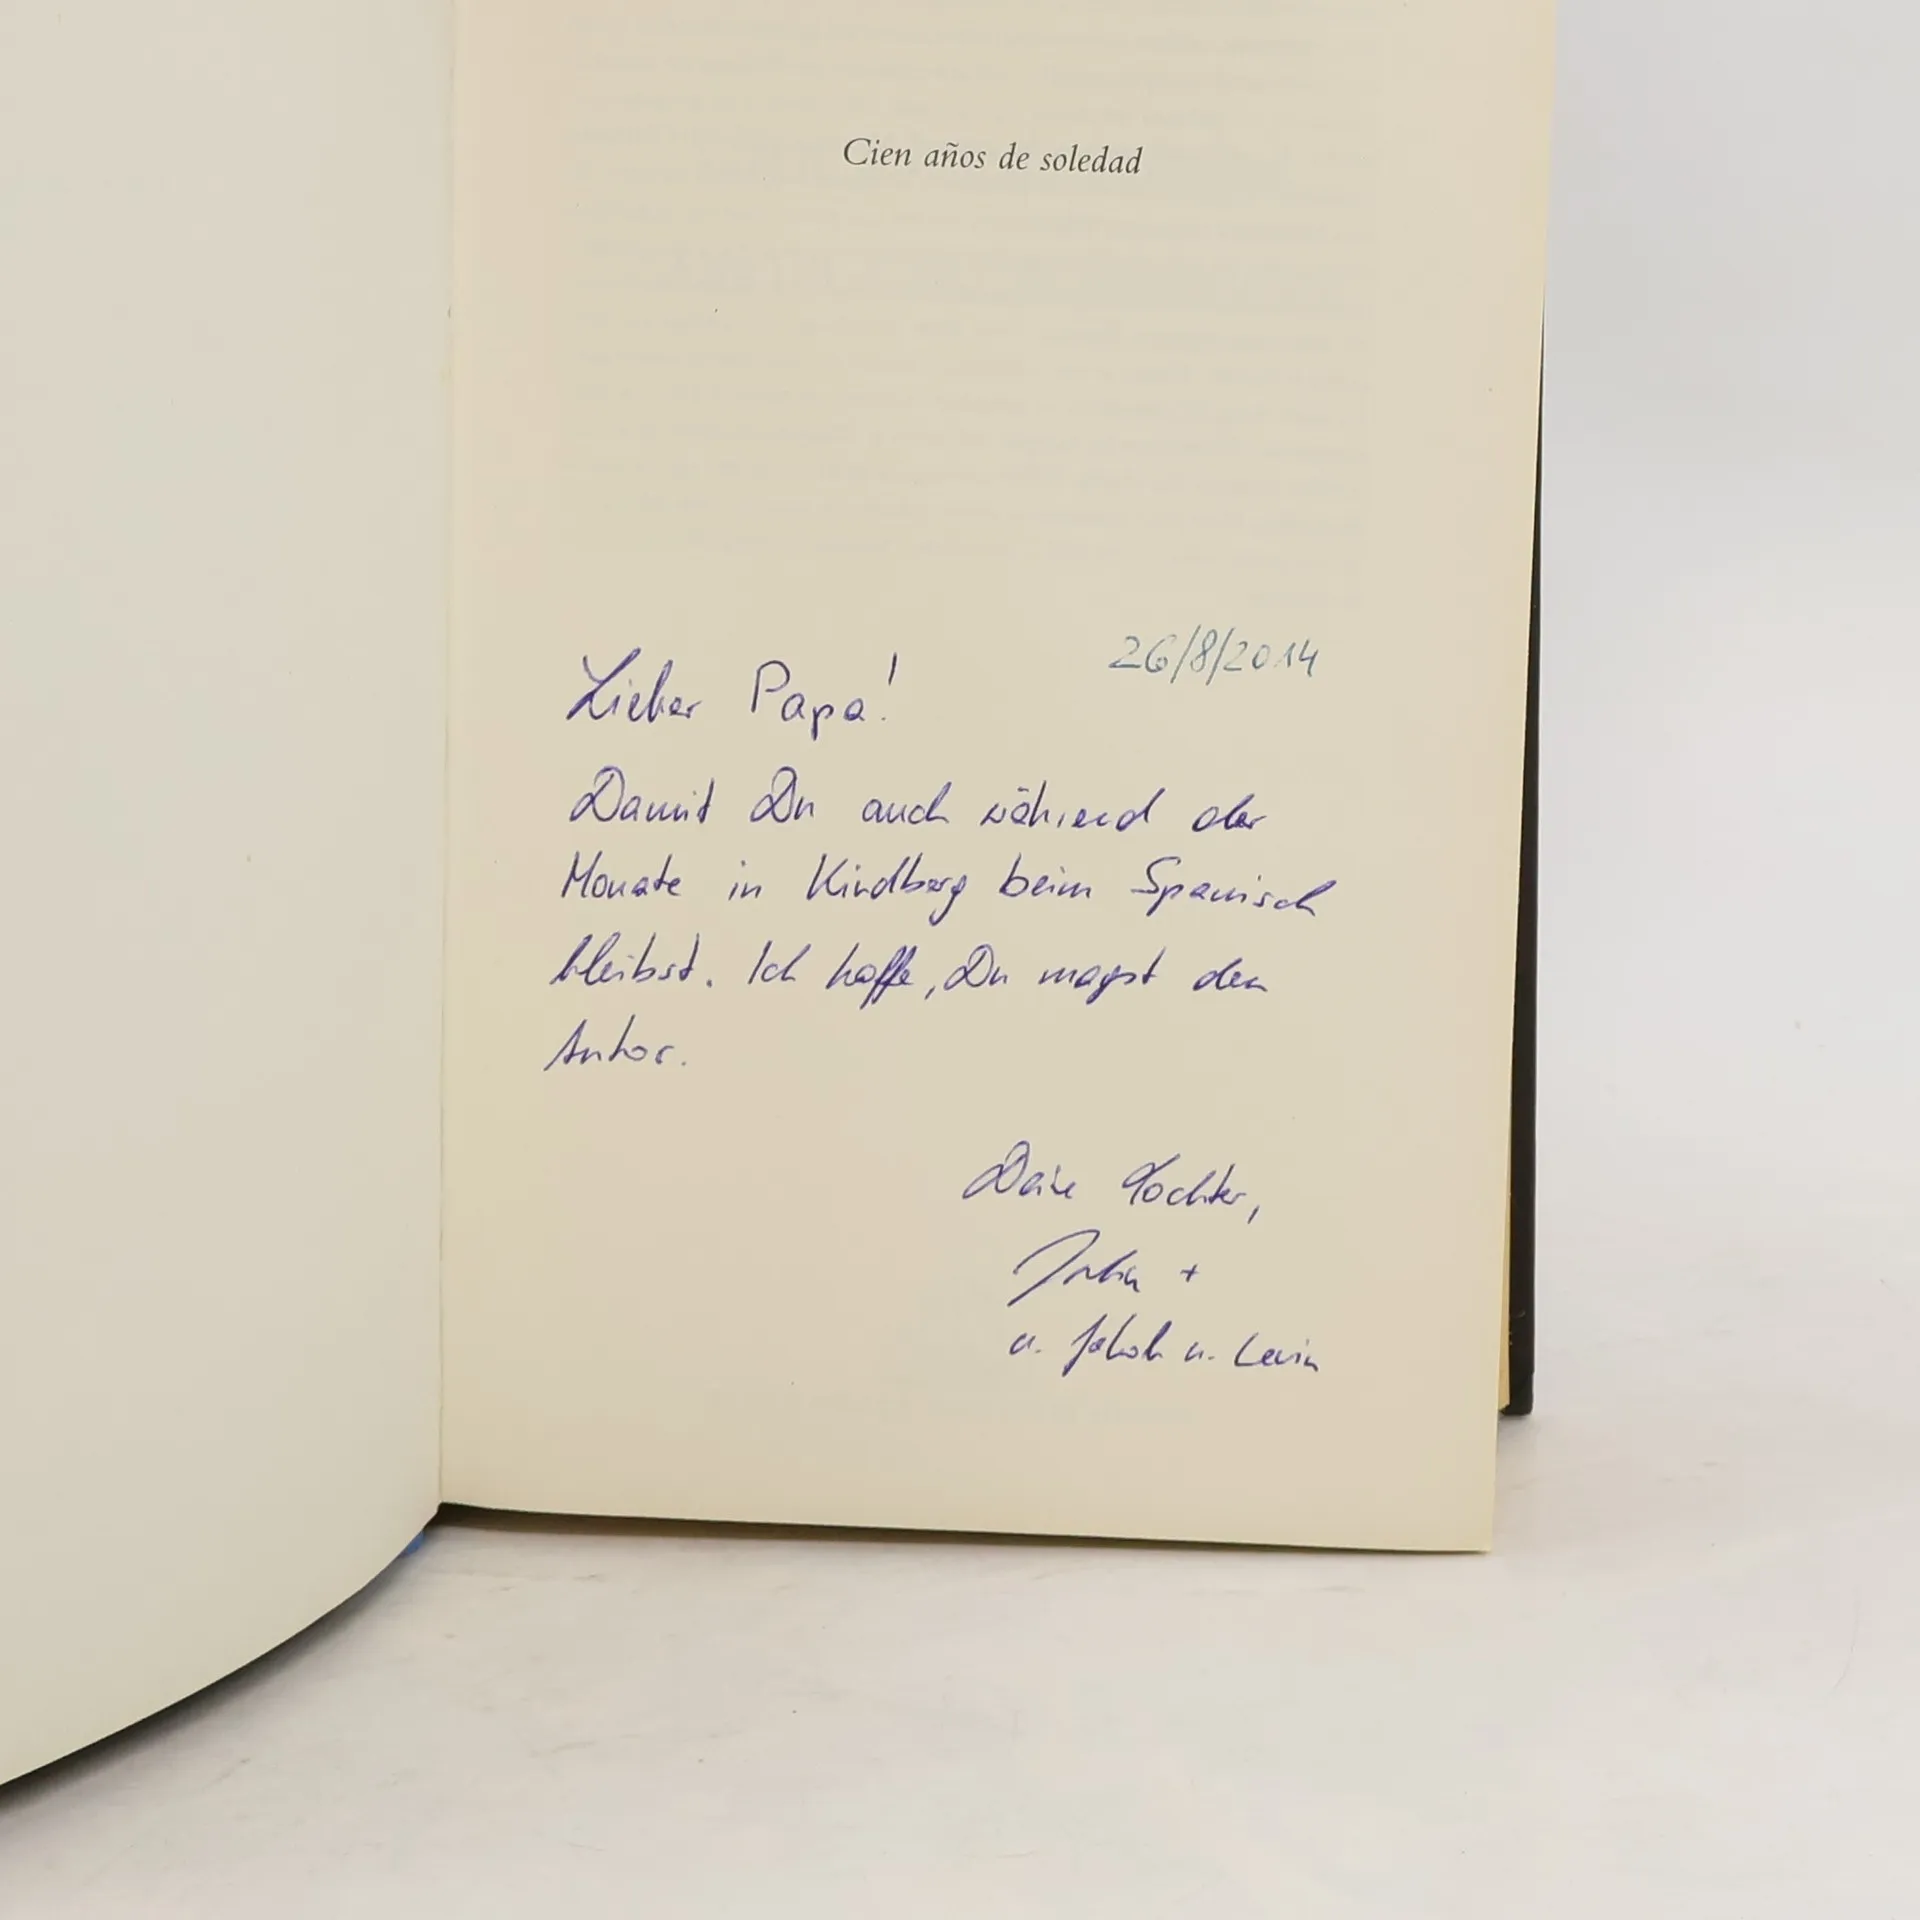 Cien años de soledad
26/8/2014
Lieber Papa!
Damit Du auch während der
Monate in Kindberg beim Spanisch
bleibst. Ich hoffe, Du magst den
Autor.
Deine Tochter,
Julia +
u. Jakob u. Levin